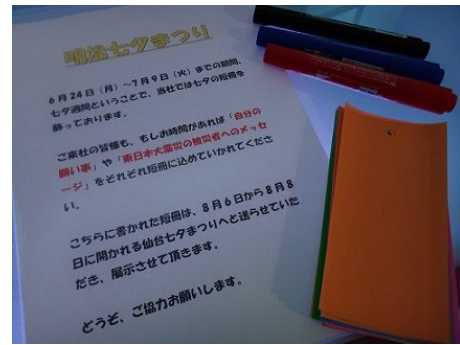 明治七夕まつり
6月24日（月）～7月9日（火）までの期間、
七夕週間ということで、当社では七夕の短冊を
飾っております。
ご来社の皆様も、もしお時間があれば「自分の
願い事」や「東日本大震災の被災者へのメッセ
ージ」をそれぞれ短冊に込めていかれてくださ
い。
こちらに書かれた短冊は、8月6日から8月8
日に開かれる仙台七夕まつりへと送らせていた
だき、展示させて頂きます。
どうぞ、ご協力お願いします。